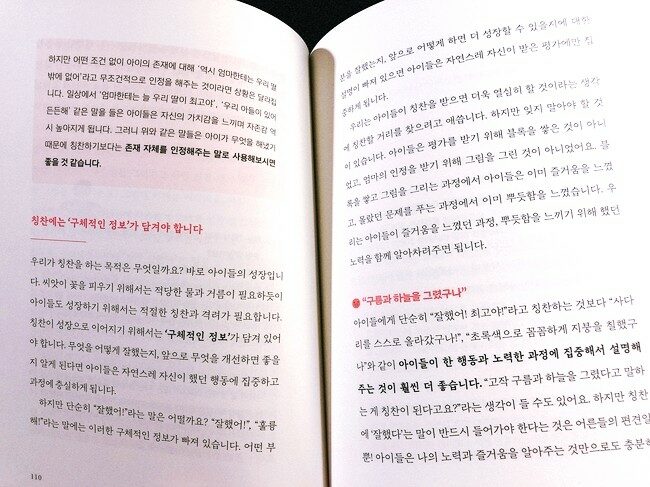 하지만 어떤 조건 없이 아이의 존재에 대해 '역시 엄마한테는 우리 딸
밖에 없어'라고 무조건적으로 인정을 해주는 것이라면 상황은 달라집
니다. 일상에서 '엄마한테는 늘 우리 딸이 최고야', '우리 아들이 있어
든든해' 같은 말을 들은 아이들은 자신의 가치감을 느끼며 자존감 역
시 높아지게 됩니다. 그러니 위와 같은 말들은 아이가 무엇을 해냈기
때문에 칭찬하기보다는 존재 자체를 인정해주는 말로 사용해보시면
좋을 것 같습니다.
칭찬에는 '구체적인 정보'가 담겨야 합니다
우리가 칭찬을 하는 목적은 무엇일까요? 바로 아이들의 성장입니
다. 씨앗이 꽃을 피우기 위해서는 적당한 물과 거름이 필요하듯이
아이들도 성장하기 위해서는 적절한 칭찬과 격려가 필요합니다.
칭찬이 성장으로 이어지기 위해서는 '구체적인 정보'가 담겨 있어
야 합니다. 무엇을 어떻게 잘했는지, 앞으로 무엇을 개선하면 좋을
지 알게 된다면 아이들은 자연스레 자신이 했던 행동에 집중하고
과정에 충실하게 됩니다.
하지만 단순히 "잘했어!"라는 말은 어떨까요? "잘했어!", "훌륭
해!"라는 말에는 이러한 구체적인 정보가 빠져 있습니다. 어떤 부
110
분을 잘했는지, 앞으로 어떻게 하면 더 성장할 수 있을지에 대한
설명이 빠져 있으면 아이들은 자연스레 자신이 받은 평가에만 집
중하게 됩니다.
우리는 아이들이 칭찬을 받으면 더욱 열심히 할 것이라는 생각
에 칭찬할 거리를 찾으려고 애씁니다. 하지만 잊지 말아야 할 것
이 있습니다. 아이들은 평가를 받기 위해 블록을 쌓은 것이 아니
었고, 엄마의 인정을 받기 위해 그림을 그린 것이 아니었어요. 블
록을 쌓고 그림을 그리는 과정에서 아이들은 이미 즐거움을 느꼈
고, 몰랐던 문제를 푸는 과정에서 이미 뿌듯함을 느꼈습니다. 우
리는 아이들이 즐거움을 느꼈던 과정, 뿌듯함을 느끼기 위해 했던
노력을 함께 알아차려주면 됩니다.
"구름과 하늘을 그렸구나"
아이들에게 단순히 "잘했어! 최고야!"라고 칭찬하는 것보다 "사다
리를 스스로 올라갔구나!", "초록색으로 꼼꼼하게 지붕을 칠했구
나"와 같이 아이들이 한 행동과 노력한 과정에 집중해서 설명해
주는 것이 훨씬 더 좋습니다. "고작 구름과 하늘을 그렸다고 말하
는 게 칭찬이 된다고요?"라는 생각이 들 수도 있어요. 하지만 칭찬
에 '잘했다'는 말이 반드시 들어가야 한다는 것은 어른들의 편견일
뿐! 아이들은 나의 노력과 즐거움을 알아주는 것만으로도 충분히